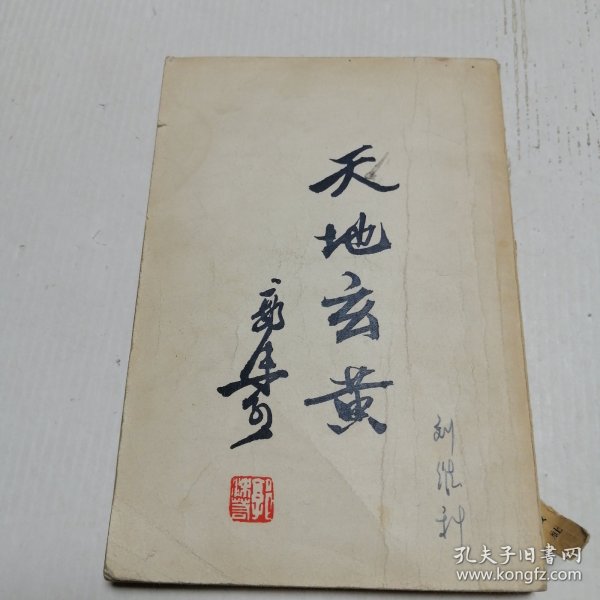 天地玄黄
郭沫若
郭沫若
刘维
孔夫子旧书网
www.kongfz.com